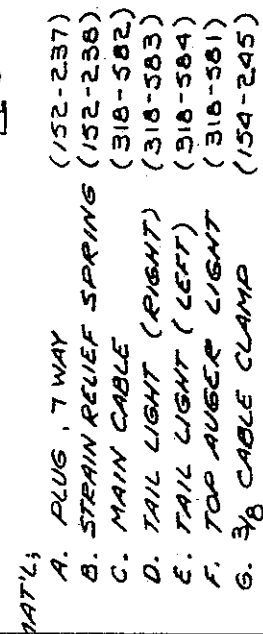 MAT'L;
A. PLUG, 7 WAY (152-237)
B. STRAIN RELIEF SPRING (152-238)
C. MAIN CABLE (318-582)
D. TAIL LIGHT (RIGHT) (318-583)
E. TAIL LIGHT (LEFT) (318-584)
F. TOP AUGER LIGHT (318-581)
G. 3/8 CABLE CLAMP (154-245)